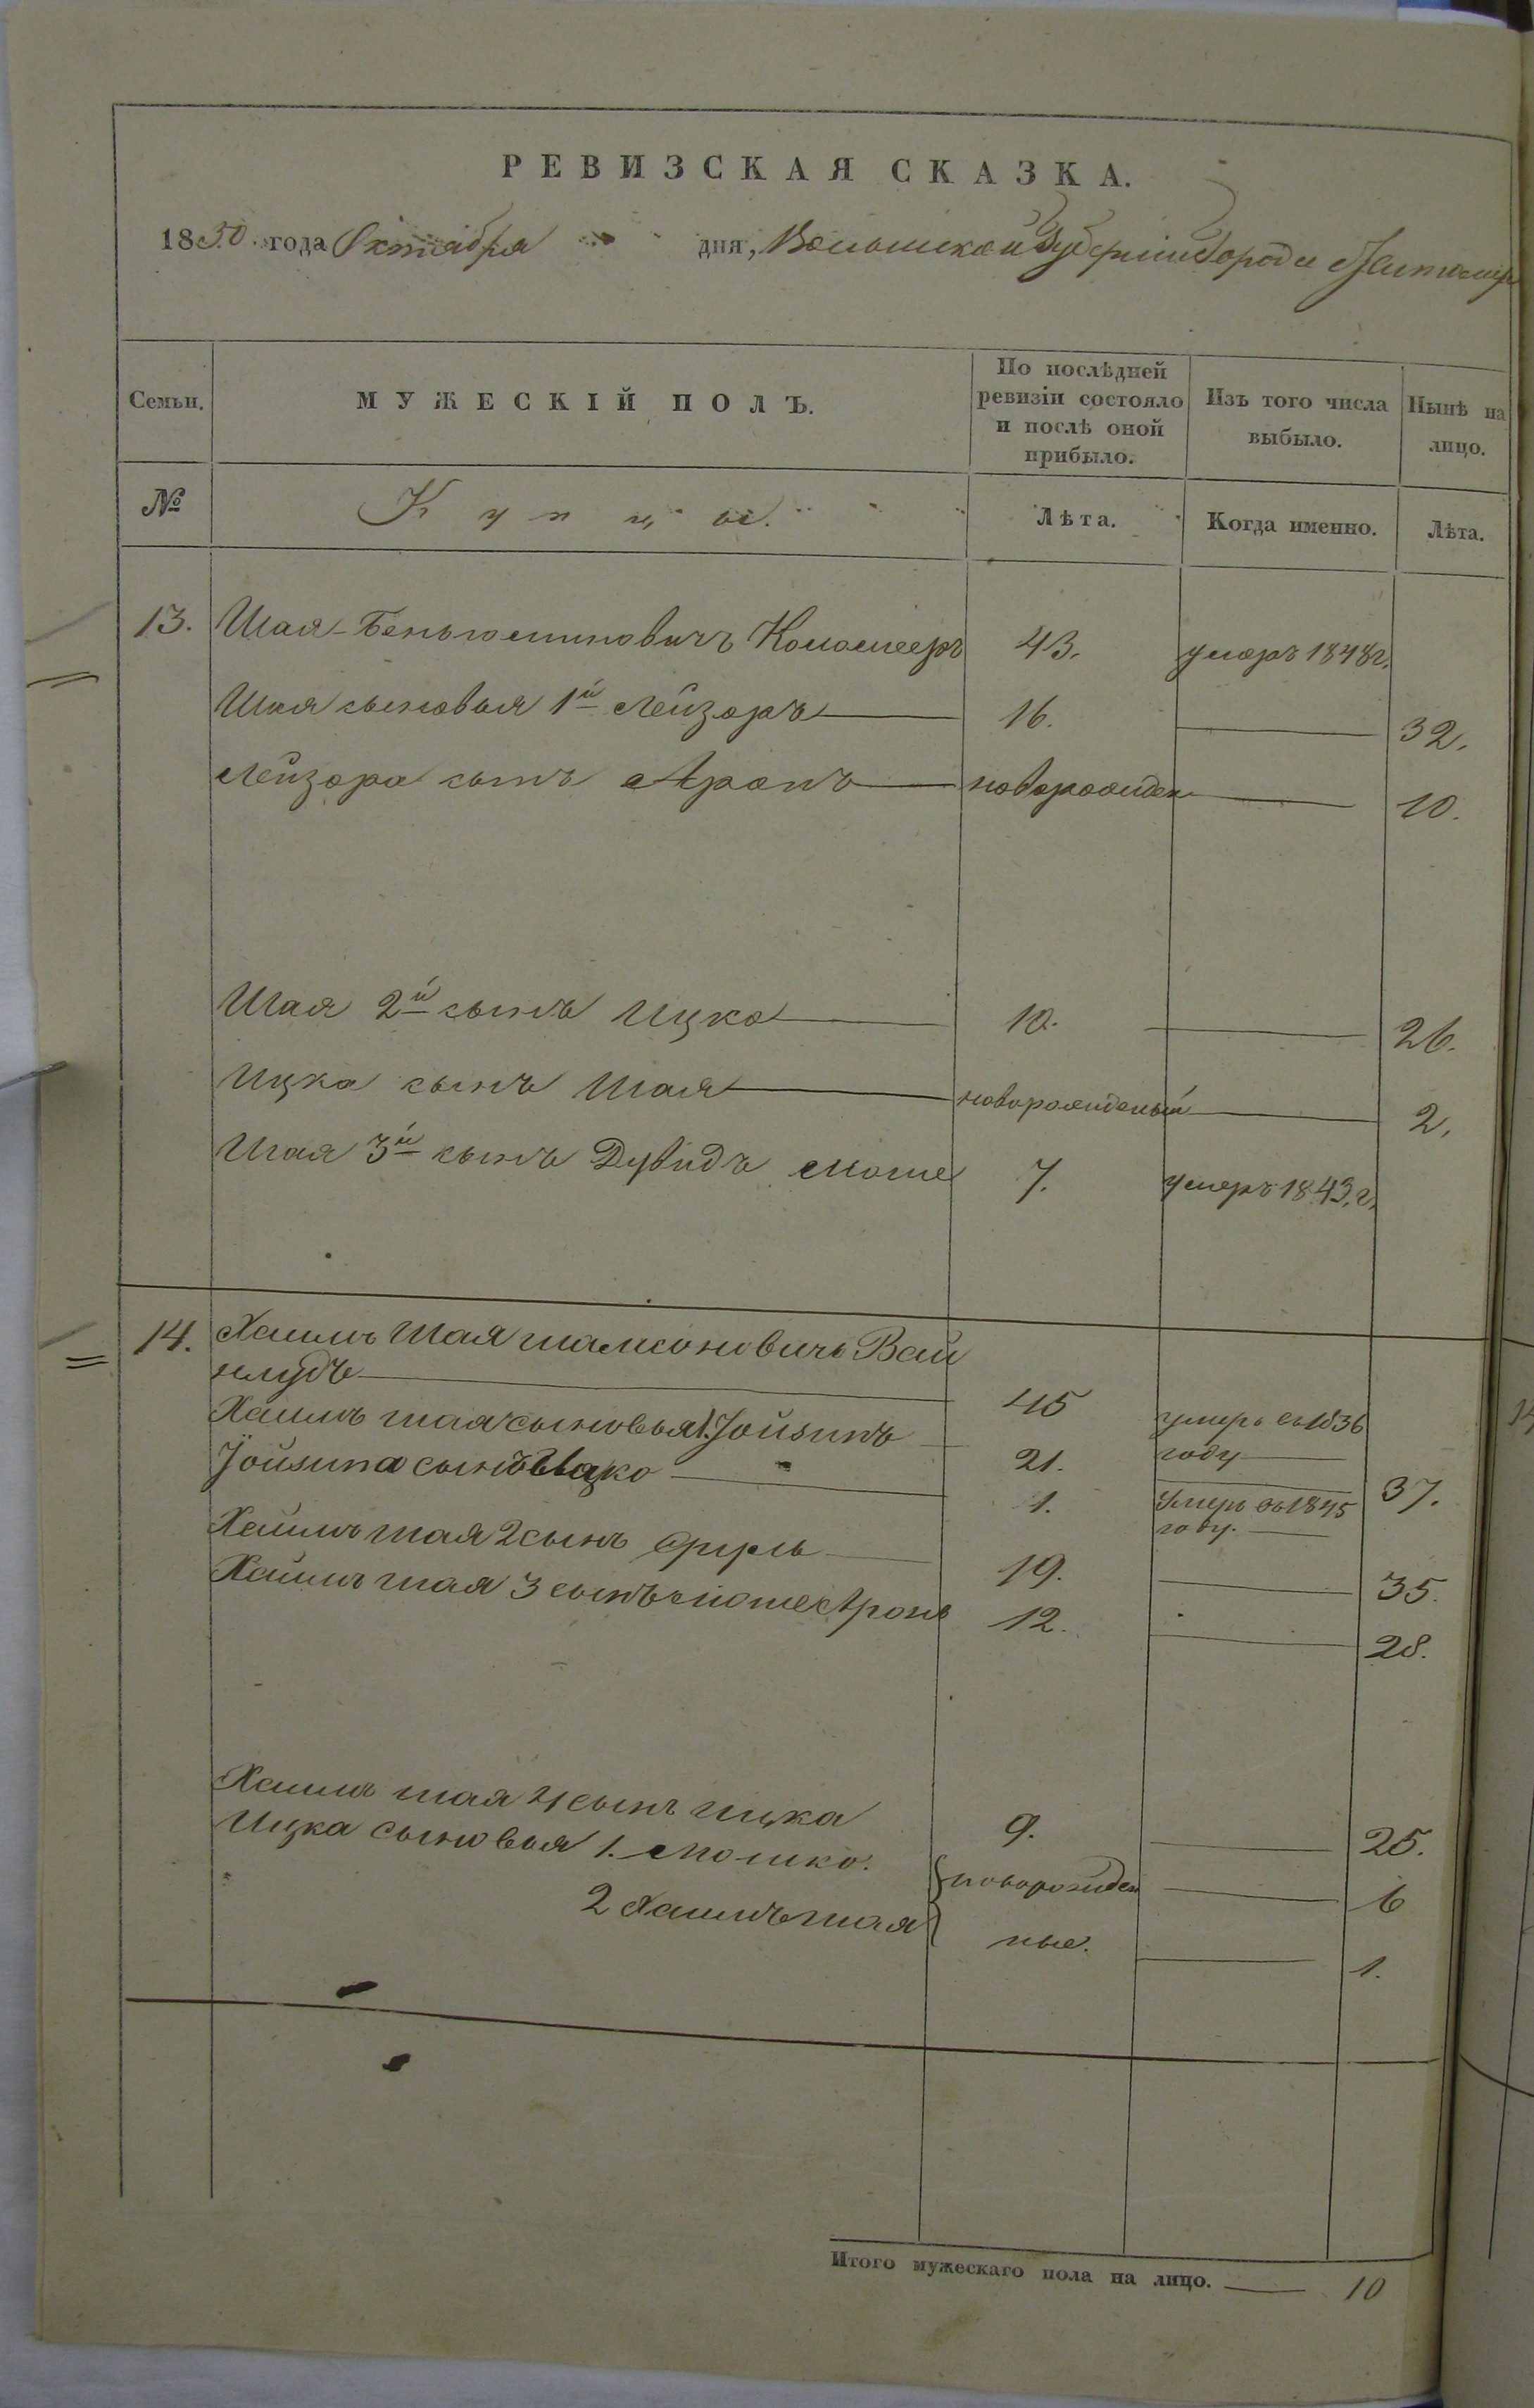 РЕВИЗСКАЯ СКАЗКА.
1850 года Октября дня, Волынской Губернии Города Житомир
Семьи. МУЖЕСКІЙ ПОЛЪ. По послѣдней ревизіи состояло и послѣ оной прибыло. Изъ того числа выбыло. Нынѣ на лицо.
№ Купцы. Лѣта. Когда именно. Лѣта.
13. Шая Беньюминовичъ 43. умеръ 1848 г.
Шая сыновья 1й Лейзоръ 16. 32.
Лейзора сынъ Аронъ новорожден 10.
Шая 2й сынъ Ицко 10. 26.
Ицка сынъ Шая новорожденый 2.
Шая 3й сынъ Дувидъ Моше 7. умеръ 1843. г.
14. Хаимъ Шая Шамсоновичъ Вай
45 умеръ въ 1836
году
Хаимъ шая сыновья 1. Іойзипъ 21. 37.
Іойзипа сынъ Ицко 1. Умеръ въ 1845
году.
Хаимъ шая 2 сынъ Сруль 19. 35.
Хаимъ шая 3 сынъ Моше Аронъ 12. 28.
Хаимъ шая 4 сынъ Ицка 9. 25.
Ицка сыновья 1. Мошко. новорожден 6
2 Хаимъ шая ные. 1.
Итого мужескаго пола на лицо. 10